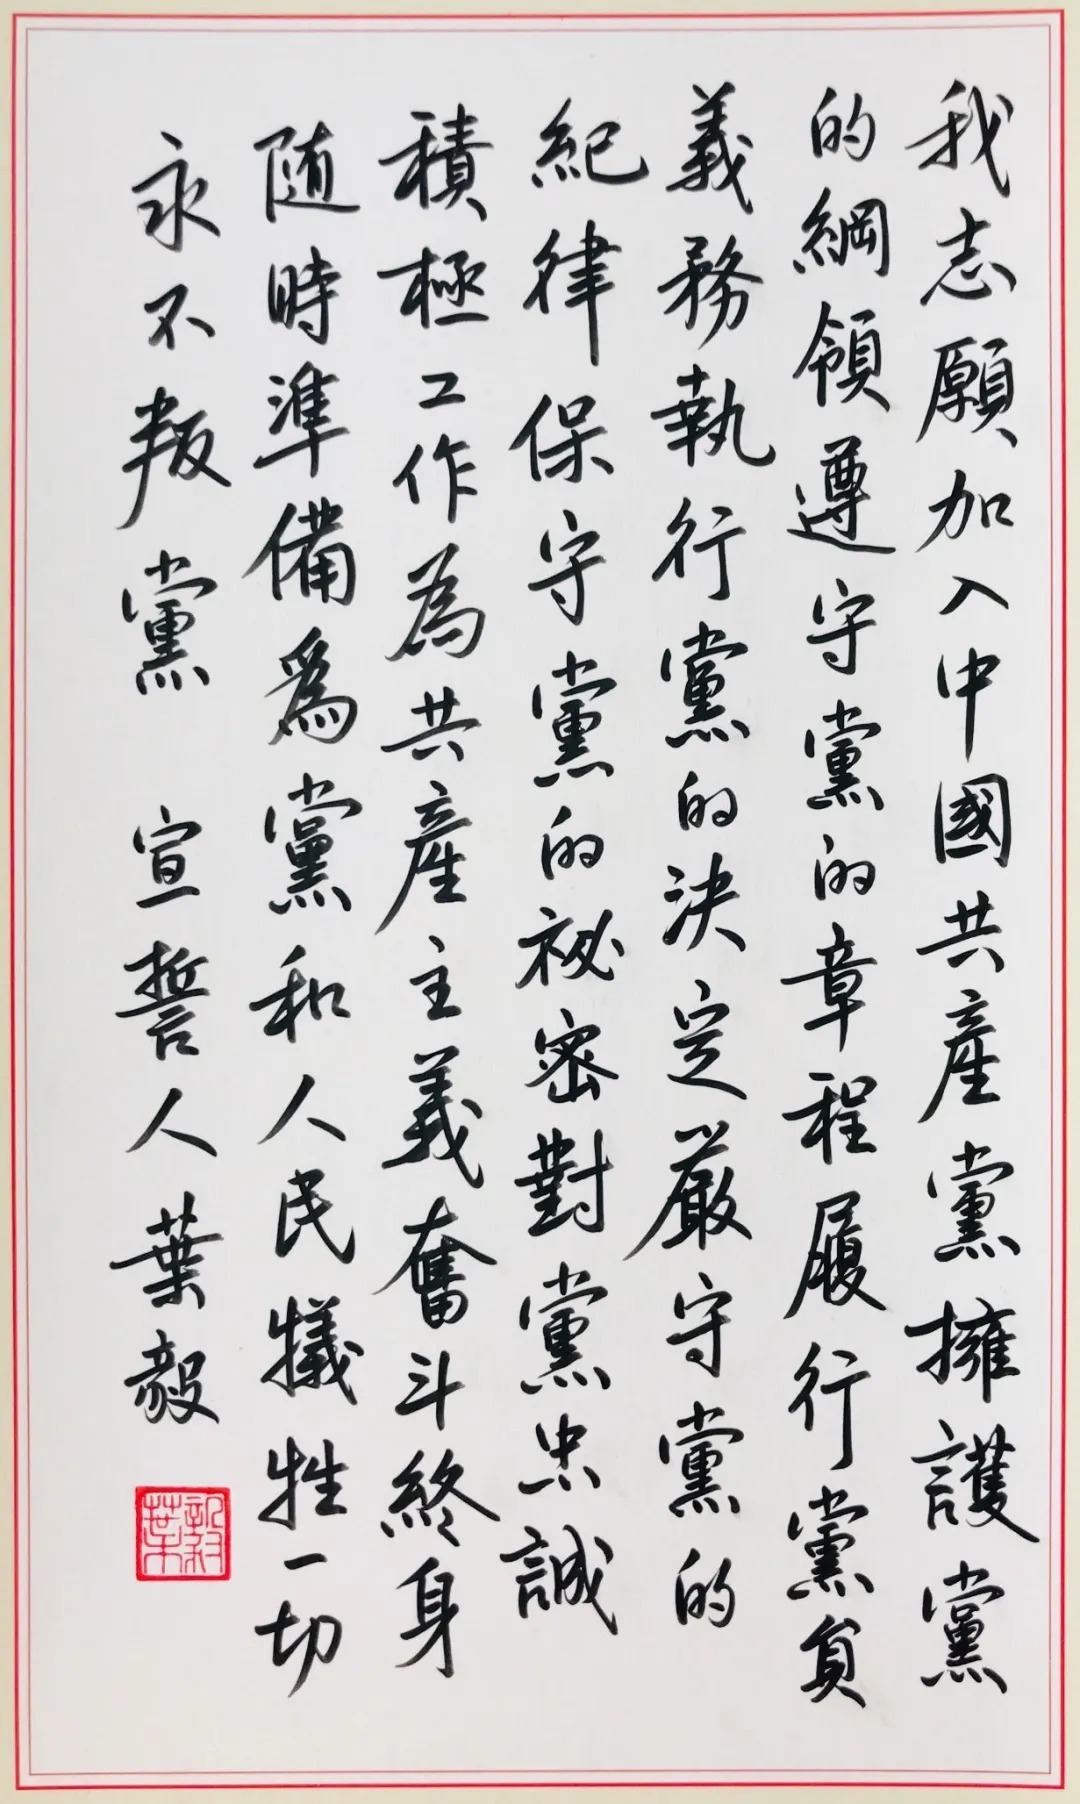 我志願加入中國共產黨擁護黨
的綱領遵守黨的章程履行黨員
義務執行黨的決定嚴守黨的
紀律保守黨的祕密對黨忠誠
積極工作為共產主義奮斗終身
随時準備為黨和人民犧牲一切
永不叛黨 宣誓人葉毅
葉毅